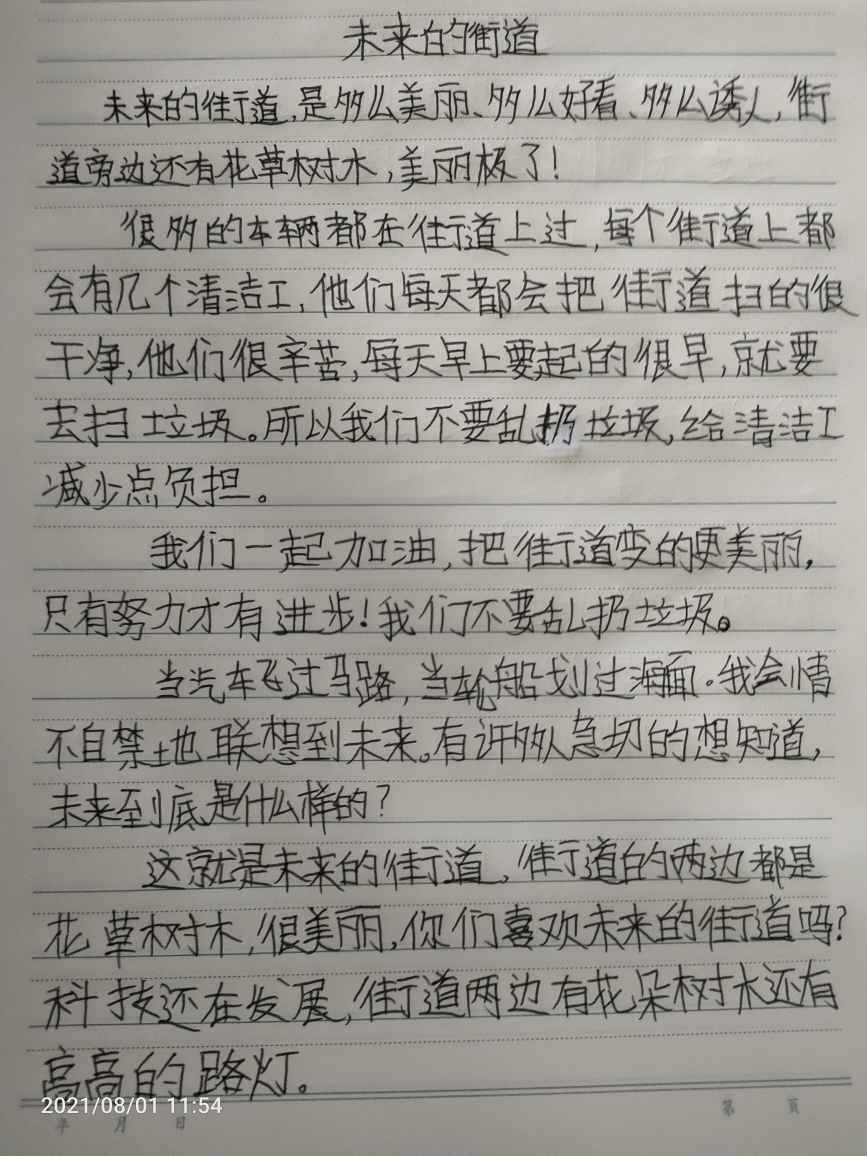 未来的街道
未来的街道,是多么美丽、多么好看、多么诱人,街
道旁边还有花草树木,美丽极了!
很多的车辆都在街道上过,每个街道上都
会有几个清洁工,他们每天都会把街道扫的很
干净,他们很辛苦,每天早上要起的很早,就要
去扫垃圾。所以我们不要乱扔垃圾,给清洁工
减少点负担。
我们一起加油,把街道变的更美丽,
只有努力才有进步!我们不要乱扔垃圾。
当汽车飞过马路,当轮船划过海面。我会情
不自禁地联想到未来。有许多人急切的想知道,
未来到底是什么样的?
这就是未来的街道,街道的两边都是
花草树木,很美丽,你们喜欢未来的街道吗?
科技还在发展,街道两边有花朵树木还有
高高的路灯。
2021/08/01 11:54
年 月 日
第 頁